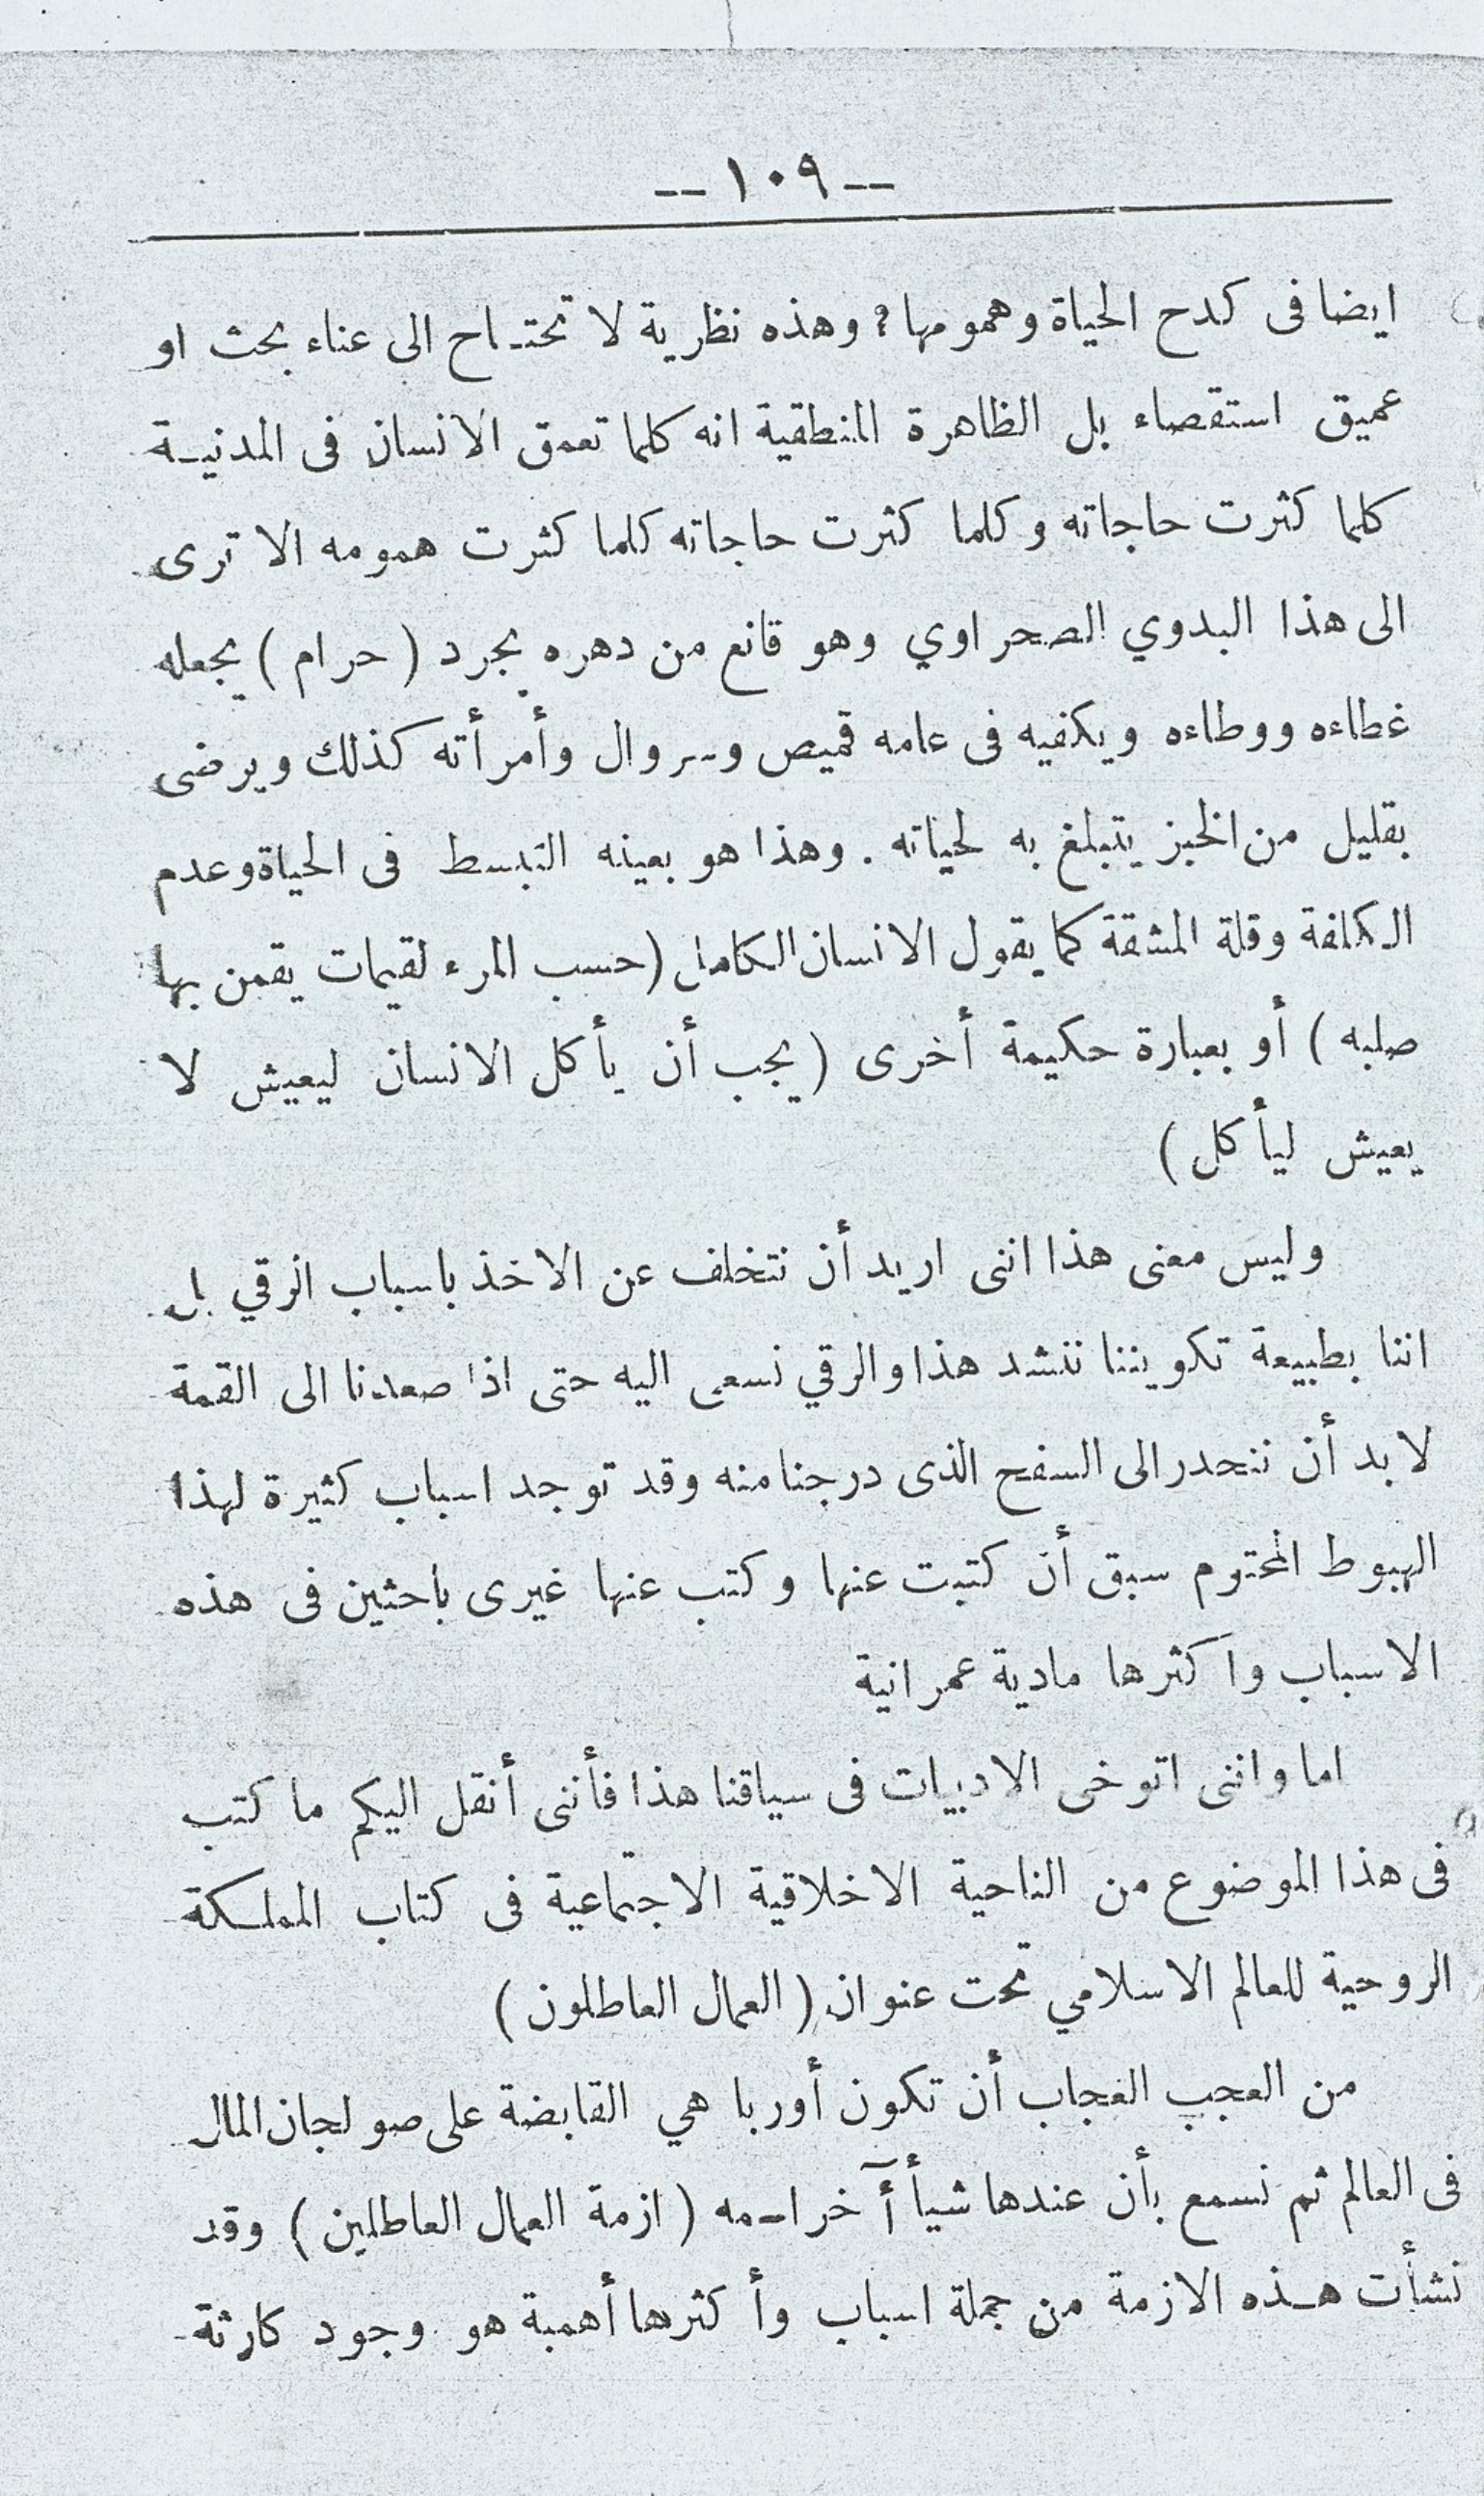 -- ١٠٩ --
ايضا فى كدح الحياة وهمومها؟ وهذه نظرية لا تحتاح الى عناء بحث او
عميق استقصاء بل الظاهرة المنطقية انه كلما تعمق الانسان فى المدنية
كلما كثرت حاجاته وكلما كثرت حاجاته كلما كثرت همومه الا ترى
الى هذا البدوي الصحراوي وهو قانع من دهره بمجرد ( حرام ) يجعله
غطاءه ووطاءه ويكفيه فى عامه قميص وسروال وأمرأته كذلك ويرضى
بقليل من الخبز يتبلغ به لحياته . وهذا هو بعينه التبسط فى الحياة وعدم
الكلفة وقلة المشقة كما يقول الانسان الكامل ( حسب المرء لقيمات يقمن بها
صلبه ) أو بعبارة حكيمة أخرى ( يجب أن يأكل الانسان ليعيش لا
يعيش ليأكل )
وليس معنى هذا اننى اريد أن نتخلف عن الاخذ باسباب الرقي بل
اننا بطبيعة تكويننا ننشد هذا والرقي نسعى اليه حتى اذا صعدنا الى القمة
لا بد أن ننحدر الى السفح الذى درجنا منه وقد توجد اسباب كثيرة لهذا
الهبوط المحتوم سبق أن كتبت عنها وكتب عنها غيرى باحثين فى هذه
الاسباب واكثرها مادية عمرانية
اما واننى اتوخى الادبيات فى سياقنا هذا فأننى أنقل اليكم ما كتب
فى هذا الموضوع من الناحية الاخلاقية الاجتماعية فى كتاب المملكة
الروحية للعالم الاسلامي تحت عنوان ( العمال العاطلون )
من العجب العجاب أن تكون أوربا هي القابضة على صولجان المال
فى العالم ثم نسمع بأن عندها شيأ أآخر اسمه ( ازمة العمال العاطلين ) وقد
نشأت هذه الازمة من جملة اسباب وأكثرها أهمية هو وجود كارثة